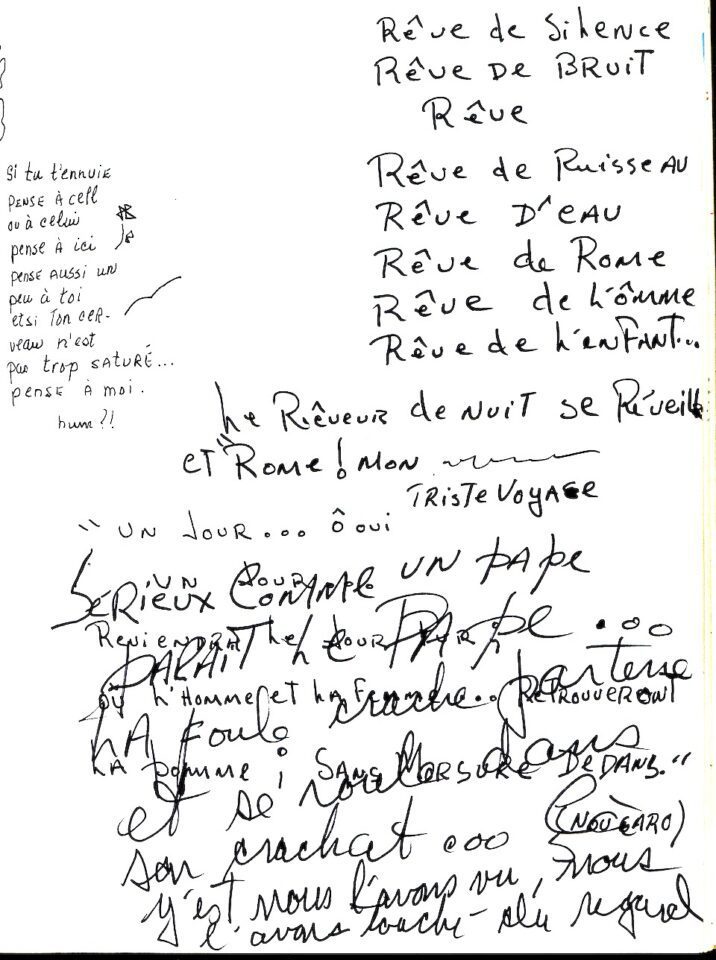 Rêve de Silence
Rêve DE BRUIT
Rêve
Rêve de Ruisseau
Rêve D'EAU
Rêve de Rome
Rêve de L'ômme
Rêve de L'enFANT...
Le Rêveur de NUIT se Réveille
et "Rome! MON
TRISTE VOYAGE
Si tu t'ennuie
PENSE À cell
ou à celui
pense À ici
pense AUSSI UN
peu à toi
et si TON CER-
veau n'est
pas trop SATURÉ...
pense À moi.
hum?!
"UN JOUR... ô oui
UN JOUR
SÉRIEUX COMME UN PAPE
REVIENDRA Le JOUR
PARAÎT LE PAPE...
OÙ L'HOMME et LA FEMME.. RETROUVERONT
LA FOULE crache par terre
LA POMME SANS MORSURE DEDANS."
et se roule dans
(NOUGARO)
son crachat ooo
y'est nous l'avons vu, nous
l'avons touché du regard